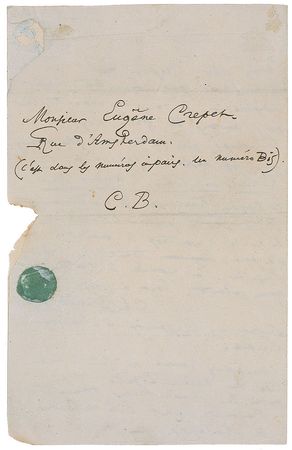 Monsieur Eugène Crepet
Rue d'Amsterdam.
(c'est dans les numéros à pairs. un numéro Bis).
C. B.